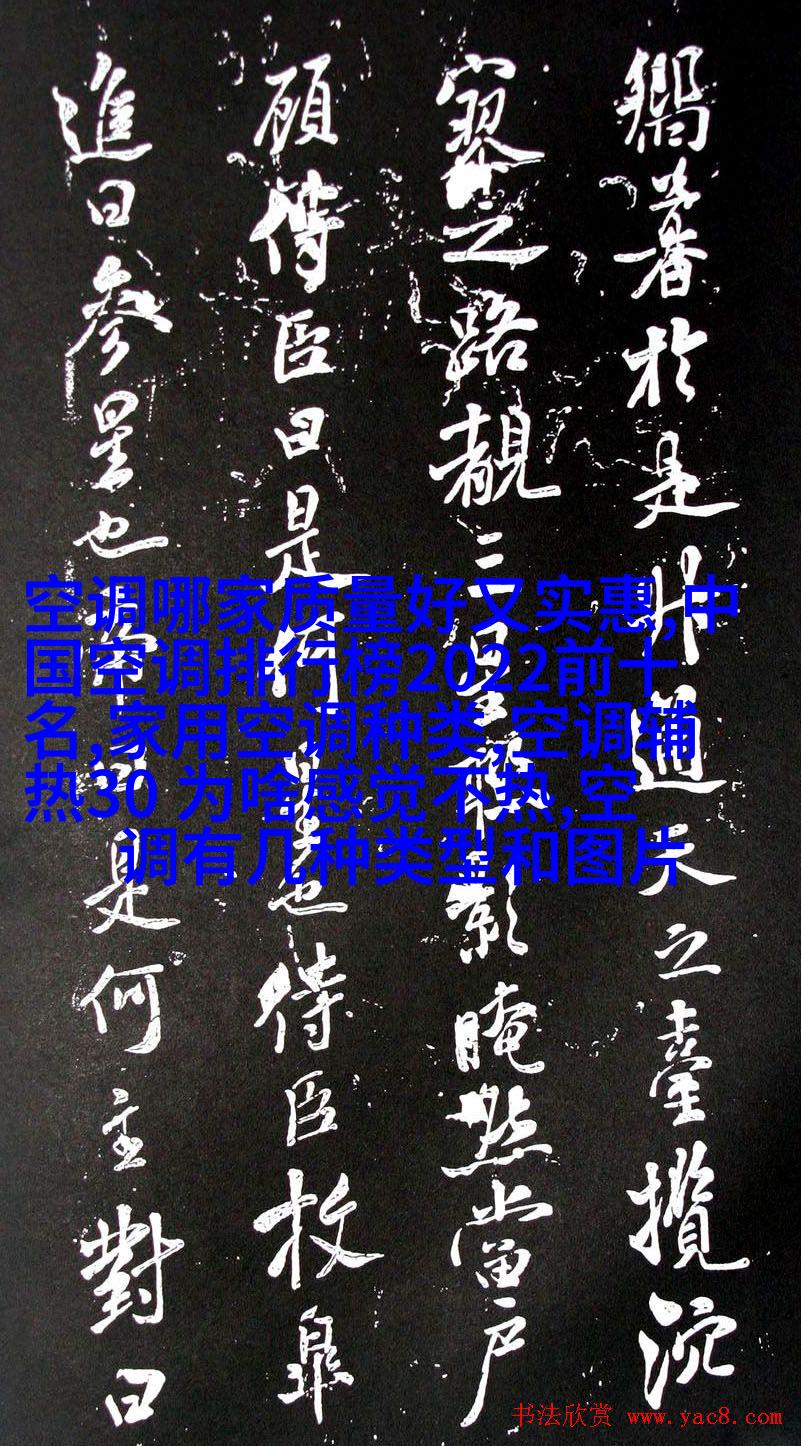 於是升通天之臺攬
寥之路二星影晻當户
顧侍臣曰是何星也侍臣枚皋
進曰參星也帝曰是何主對曰
空调哪家质量好又实惠,中
国空调排行榜2022前十
名,家用空调种类,空调辅
热30 为啥感觉不热,空
调有几种类型和图片
书法欣赏 www.yac8.com